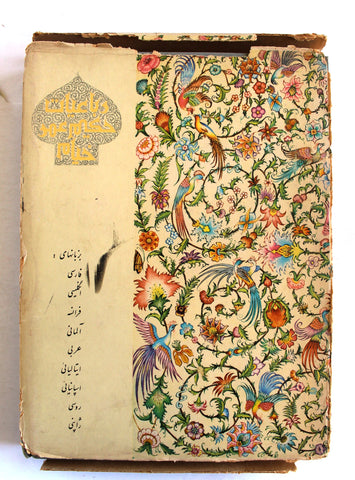 رباعیات
حکیم عمر
خیام
بزبانهای :
فارسی
انگلیسی
فرانسه
آلمانی
عربی
ایتالیائی
اسپانیائی
روسی
ژاپنی